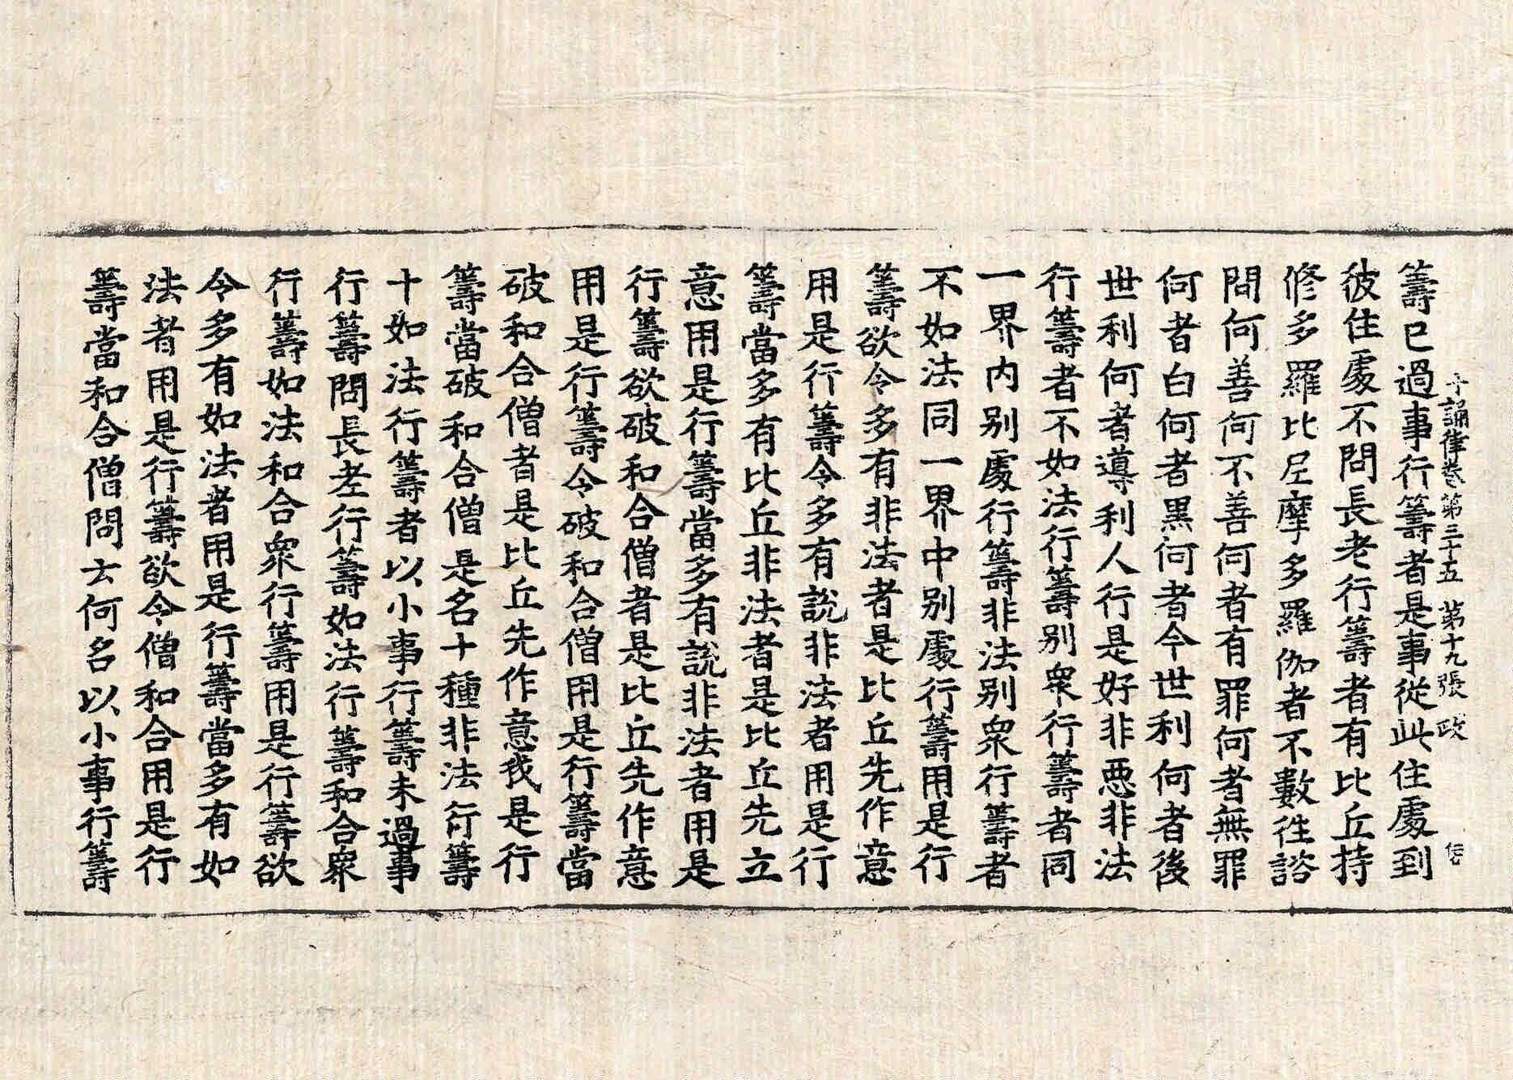 十誦律卷第三十五 第十九張 政
籌已過事行籌者是事從此住處到
彼住處不問長老行籌者有比丘持
修多羅比尼摩多羅伽者不數往諮
問何善何不善何者有罪何者無罪
何者白何者黒何者今世利何者後
世利何者導利人行是好非惡非法
行籌者不如法行籌别衆行籌者同
一界内别處行籌非法别衆行籌者
不如法同一界中别處行籌用是行
籌欲令多有非法者是比丘先作意
用是行籌令多有說非法者用是行
籌當多有比丘非法者是比丘先立
意用是行籌當多有說非法者用是
行籌欲破和合僧者是比丘先作意
用是行籌令破和合僧用是行籌當
破和合僧者是比丘先作意我是行
籌當破和合僧是名十種非法行籌
十如法行籌者以小事行籌未過事
行籌問長老行籌如法行籌和合衆
行籌如法和合衆行籌用是行籌欲
令多有如法者用是行籌當多有如
法者用是行籌欲令僧和合用是行
籌當和合僧問云何名以小事行籌